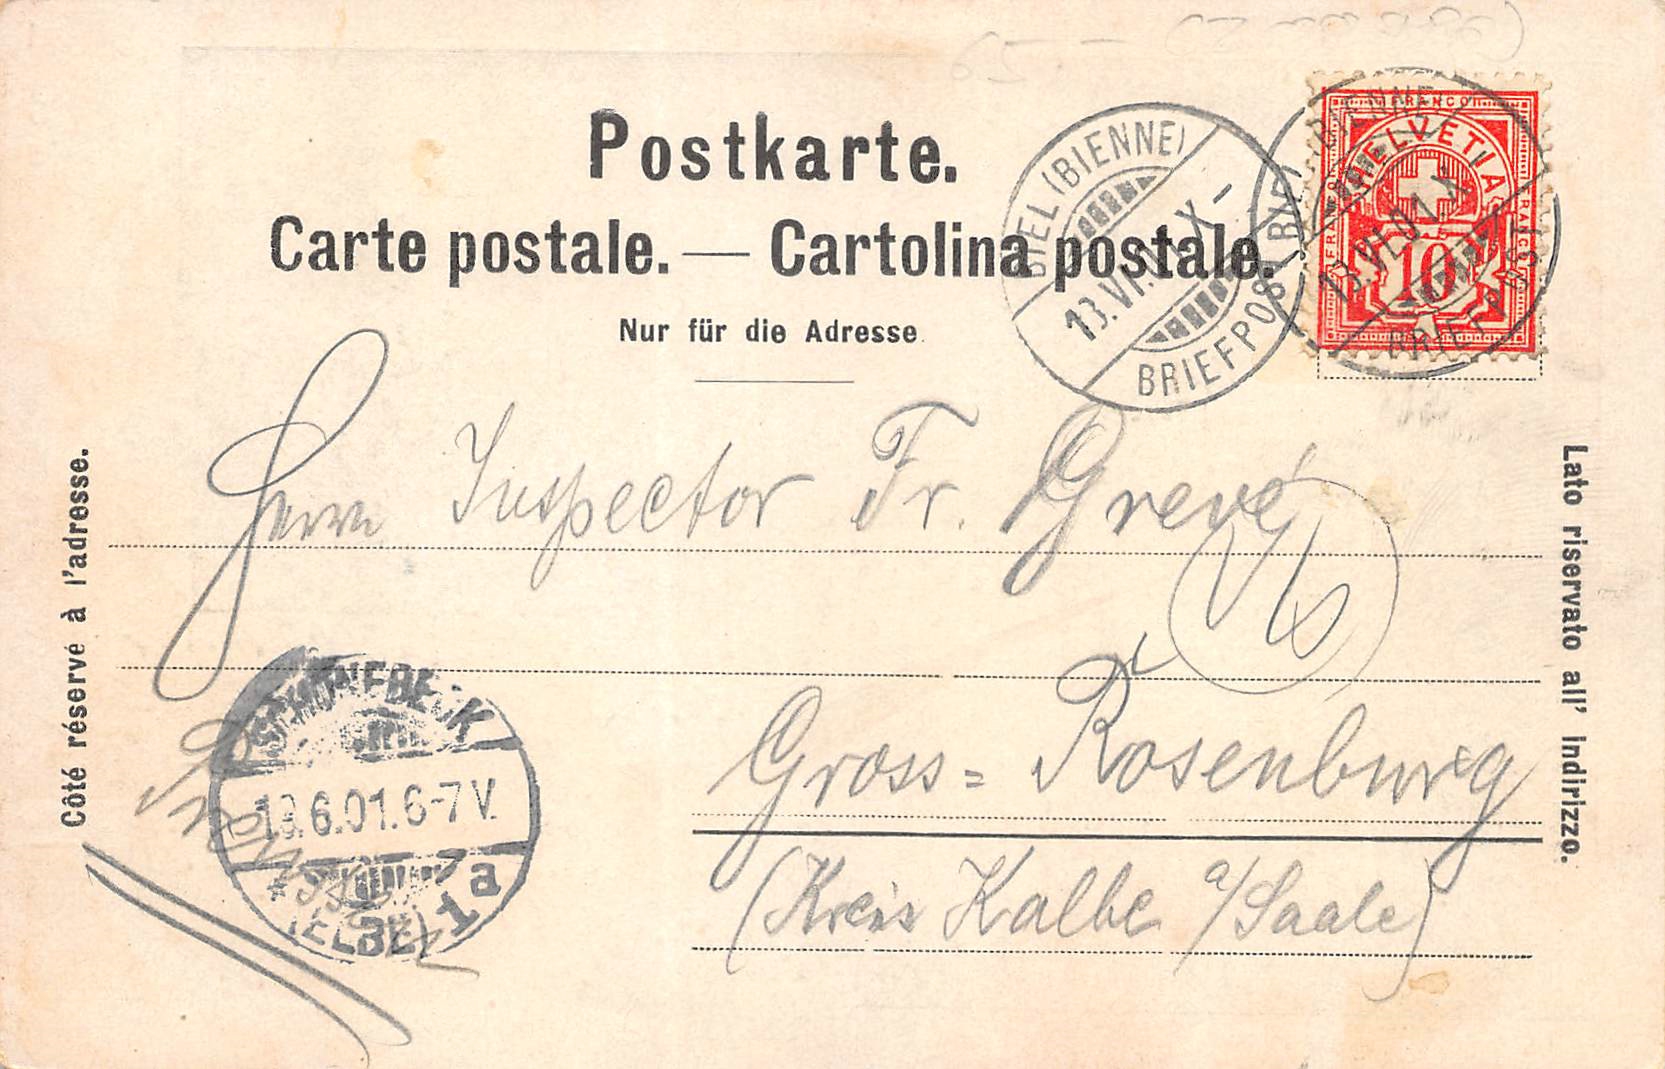 Postkarte.
Carte postale. — Cartolina postale.
Nur für die Adresse.
Côté réservé à l'adresse.
Lato riservato all' indirizzo.
BIEL (BIENNE)
13.VI.01.X-
BRIEFPOST
BIEL (BIENNE)
13.VI.01.X
BRIEFPOST
FRANCO
HELVETIA
10
Herrn Inspector Fr. Grevé
Gross=Rosenburg
(Kreis Kalbe a/Saale)
SCHÖNEBECK
6.01.6-7V.
* (ELBE) 1a